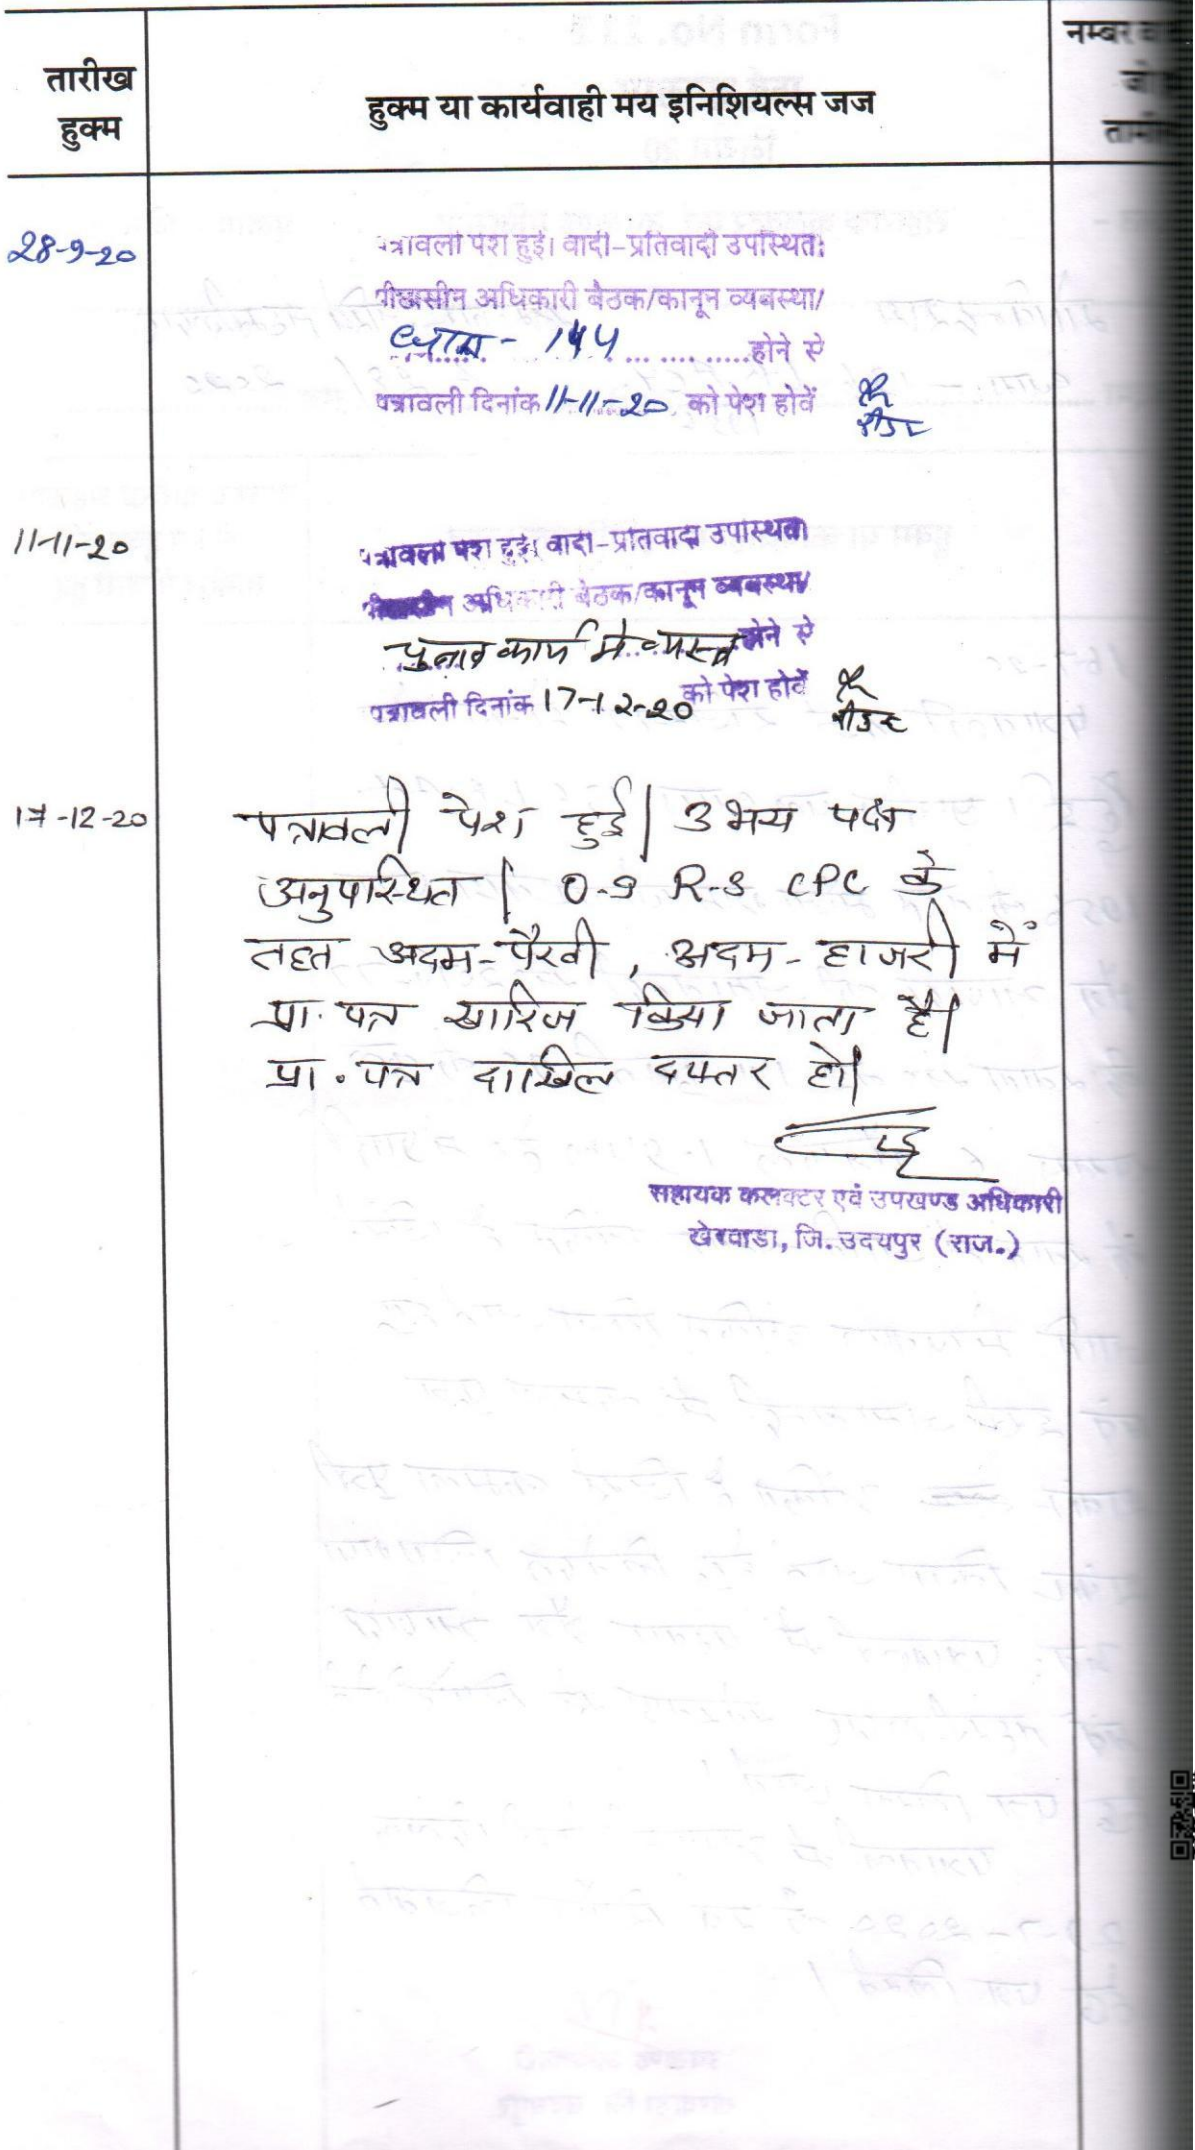 तारीख
हुक्म
हुक्म या कार्यवाही मय इनिशियल्स जज
नम्बर
जो
28-9-20
पत्रावली पेश हुई। वादी-प्रतिवादी उपस्थित।
पीठासीन अधिकारी बैठक/कानून व्यवस्था/
धारा - 144 ... .... .....होने से
पत्रावली दिनांक 11-11-20 को पेश होवें
रीडर
11-11-20
पत्रावली पेश हुई। वादी-प्रतिवादी उपस्थित।
पीठासीन अधिकारी बैठक/कानून व्यवस्था/
चुनाव कार्य में व्यस्त होने से
पत्रावली दिनांक 17-12-20 को पेश होवें
रीडर
17-12-20
पत्रावली पेश हुई। उभय पक्ष
अनुपस्थित। 0-9 R-8 CPC के
तहत अदम-पैरवी, अदम-हाजरी में
प्रा. पत्र खारिज किया जाता है।
प्रा. पत्र दाखिल दफ्तर हो।
सहायक कलक्टर एवं उपखण्ड अधिकारी
खेरवाडा, जि. उदयपुर (राज.)